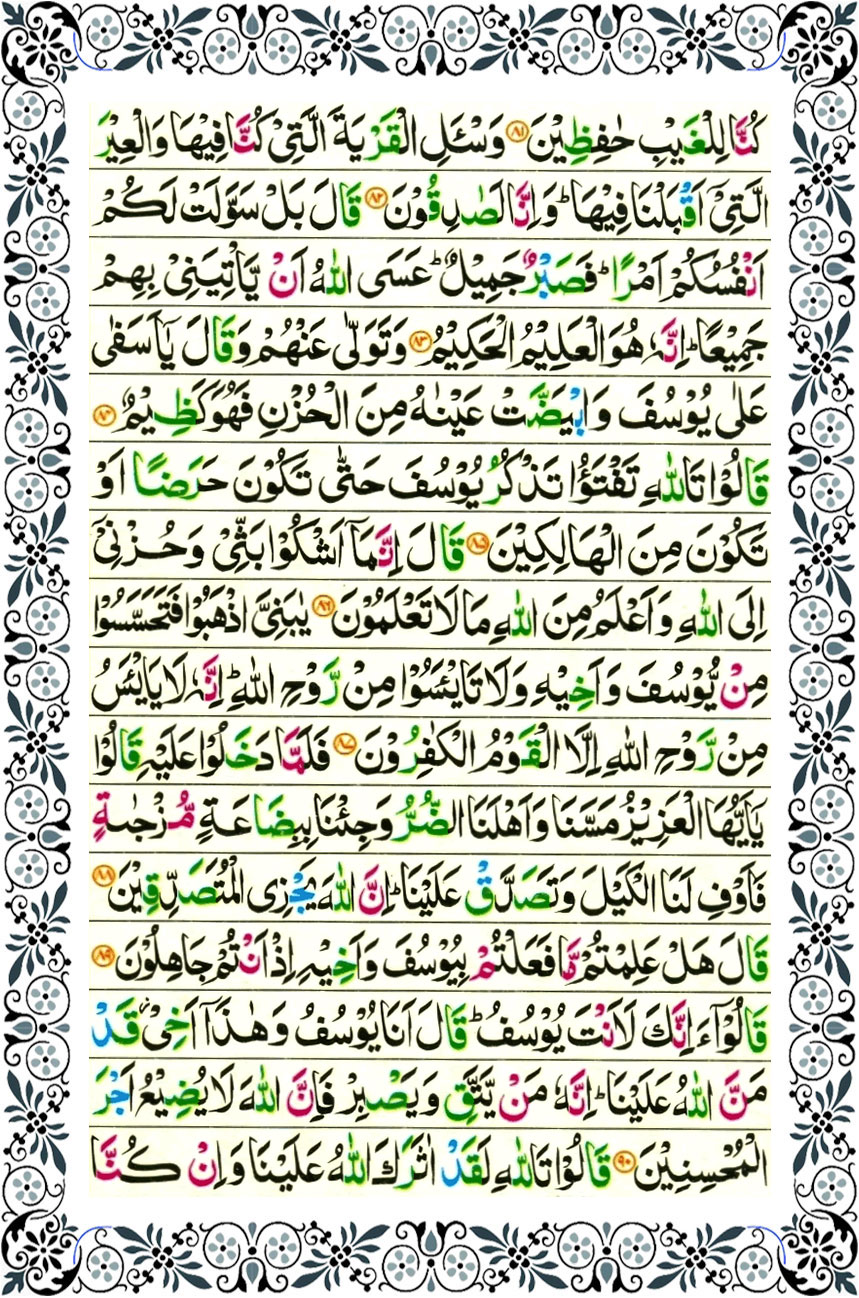 كُنَّا لِلْغَيْبِ حٰفِظِيْنَ ۝۸۱ وَسْئَلِ الْقَرْيَةَ الَّتِيْ كُنَّا فِيْهَا وَالْعِيْرَ
الَّتِيْٓ اَقْبَلْنَا فِيْهَا ؕ وَاِنَّا لَصٰدِقُوْنَ ۝۸۲ قَالَ بَلْ سَوَّلَتْ لَكُمْ
اَنْفُسُكُمْ اَمْرًا ؕ فَصَبْرٌ جَمِيْلٌ ؕ عَسَى اللّٰهُ اَنْ يَّاْتِيَنِيْ بِهِمْ
جَمِيْعًا ؕ اِنَّهٗ هُوَ الْعَلِيْمُ الْحَكِيْمُ ۝۸۳ وَتَوَلّٰى عَنْهُمْ وَقَالَ يٰٓاَسَفٰى
عَلٰى يُوْسُفَ وَابْيَضَّتْ عَيْنٰهُ مِنَ الْحُزْنِ فَهُوَ كَظِيْمٌ ۝۸۴
قَالُوْا تَاللّٰهِ تَفْتَؤُا تَذْكُرُ يُوْسُفَ حَتّٰى تَكُوْنَ حَرَضًا اَوْ
تَكُوْنَ مِنَ الْهَالِكِيْنَ ۝۸۵ قَالَ اِنَّمَآ اَشْكُوْا بَثِّيْ وَحُزْنِيْٓ
اِلَى اللّٰهِ وَاَعْلَمُ مِنَ اللّٰهِ مَا لَا تَعْلَمُوْنَ ۝۸۶ يٰبَنِيَّ اذْهَبُوْا فَتَحَسَّسُوْا
مِنْ يُّوْسُفَ وَاَخِيْهِ وَلَا تَايْئَسُوْا مِنْ رَّوْحِ اللّٰهِ ؕ اِنَّهٗ لَا يَايْئَسُ
مِنْ رَّوْحِ اللّٰهِ اِلَّا الْقَوْمُ الْكٰفِرُوْنَ ۝۸۷ فَلَمَّا دَخَلُوْا عَلَيْهِ قَالُوْا
يٰٓاَيُّهَا الْعَزِيْزُ مَسَّنَا وَاَهْلَنَا الضُّرُّ وَجِئْنَا بِبِضَاعَةٍ مُّزْجٰىةٍ
فَاَوْفِ لَنَا الْكَيْلَ وَتَصَدَّقْ عَلَيْنَا ؕ اِنَّ اللّٰهَ يَجْزِى الْمُتَصَدِّقِيْنَ ۝۸۸
قَالَ هَلْ عَلِمْتُمْ مَّا فَعَلْتُمْ بِيُوْسُفَ وَاَخِيْهِ اِذْ اَنْتُمْ جَاهِلُوْنَ ۝۸۹
قَالُوْٓا ءَاِنَّكَ لَاَنْتَ يُوْسُفُ ؕ قَالَ اَنَا يُوْسُفُ وَهٰذَآ اَخِيْ قَدْ
مَنَّ اللّٰهُ عَلَيْنَا ؕ اِنَّهٗ مَنْ يَّتَّقِ وَيَصْبِرْ فَاِنَّ اللّٰهَ لَا يُضِيْعُ اَجْرَ
الْمُحْسِنِيْنَ ۝۹۰ قَالُوْا تَاللّٰهِ لَقَدْ اٰثَرَكَ اللّٰهُ عَلَيْنَا وَاِنْ كُنَّا